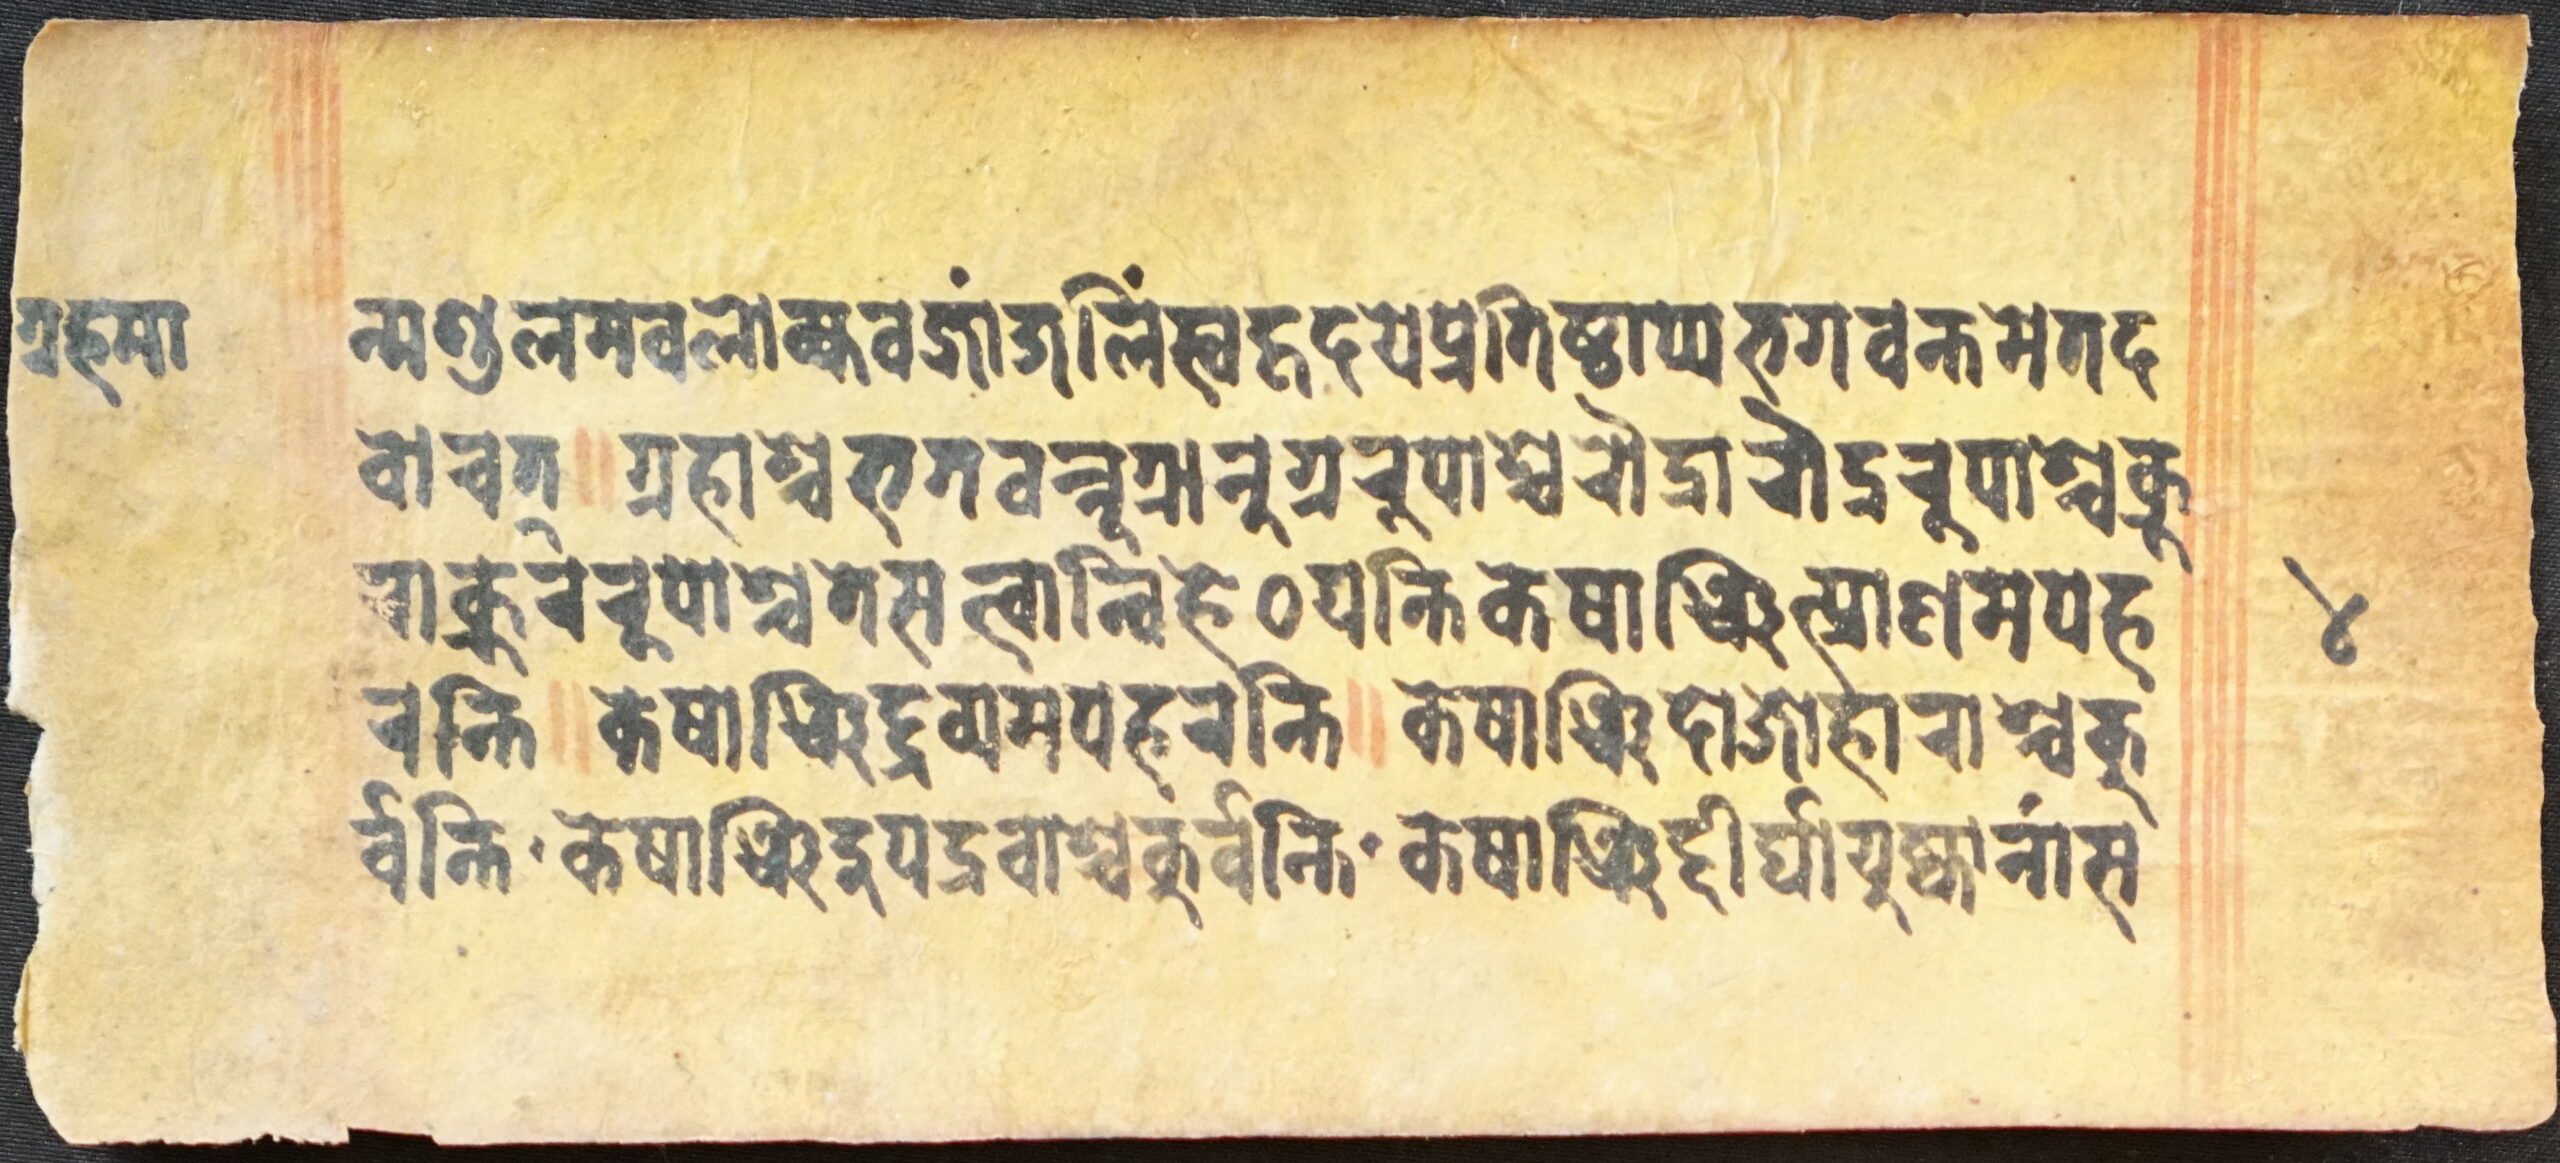 ग्रहमा
न्मण्डलमवलोक्य वज्रांजलिं स्वहृदये प्रतिष्ठाप्य भगवन्तमेतद
वोचत् ॥ ग्रहाश्च भगवन्नूग्रानुग्ररुपाश्च रौद्रा रौद्ररुपाश्च क्रु
रा क्रुररुपाश्च ते सत्वान्विहे०ठयन्ति केषाञ्चित्प्राणमपह
रन्ति ॥ केषाञ्चिद्द्रव्यमपहरन्ति ॥ केषाञ्चिदोजोहाराश्च कु
र्वन्ति · केषाञ्चिदुपद्रवाश्च कुर्वन्ति · केषाञ्चिद्दीर्घायुष्कानां स
४